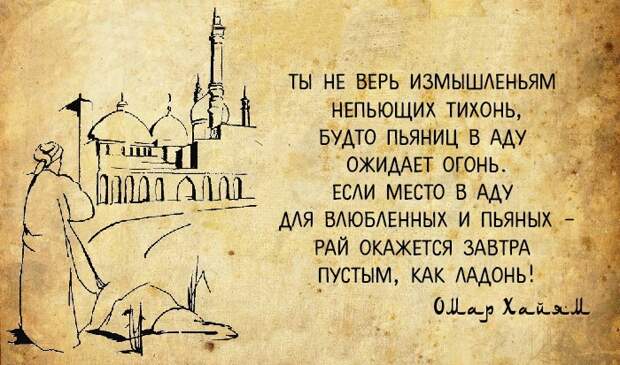 ТЫ НЕ ВЕРЬ ИЗМЫШЛЕНЬЯМ
НЕПЬЮЩИХ ТИХОНЬ,
БУДТО ПЬЯНИЦ В АДУ
ОЖИДАЕТ ОГОНЬ.
ЕСЛИ МЕСТО В АДУ
ДЛЯ ВЛЮБЛЕННЫХ И ПЬЯНЫХ –
РАЙ ОКАЖЕТСЯ ЗАВТРА
ПУСТЫМ, КАК ЛАДОНЬ!
Омар Хайям